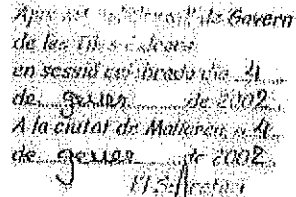 de Govern
de les Illes Balears
en sessió celebrada dia 4
de gener de 2002
A la ciutat de Mallorca, a 4
de gener de 2002